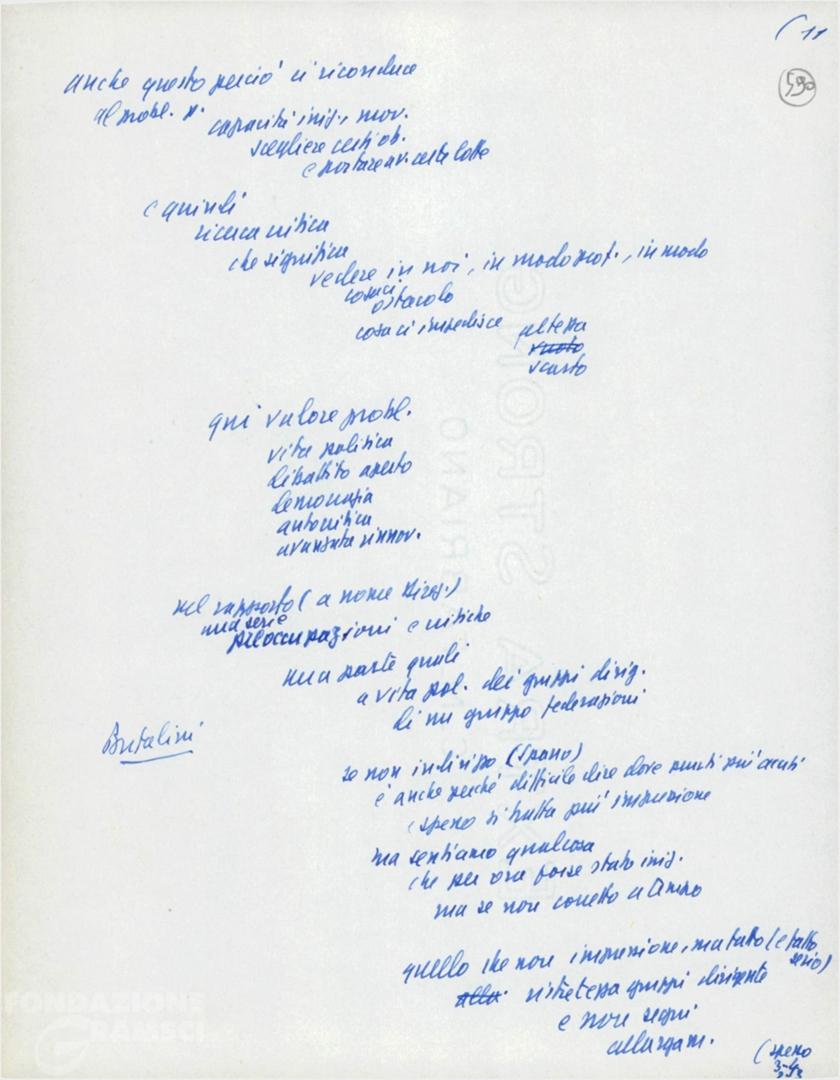 ( 11
590
anche questo perciò ci riconduce
al probl. p.
capacità iniz., mov.
scegliere certi ob.
e portare av. certe lotte
e quindi
ricerca critica
che significa
vedere in noi, in modo prof., in modo
cosa ci
ostacolo
cosa ci impedisce altezza
vuoto
scarto
qui valore probl.
vita politica
dibattito aperto
democrazia
autocritica
avanzata rinnov.
nel rapporto (a nome Direz.)
una serie
preoccupazioni e critiche
una parte quali
a vita pol. dei gruppi dirig.
di un gruppo federazioni
Bufalini
se non indirizzo (Spano)
è anche perché difficile dire dove punti più acuti
e spesso si tratta più impressione
ma sentiamo qualcosa
che per ora forse stato iniz.
ma se non corretto
quello che non impressione, ma fatto (e fatto
serio)
alla ristretezza gruppi dirigente
e non segni
allargam.
(spesso
3-4
FONDAZIONE
GRAMSCI